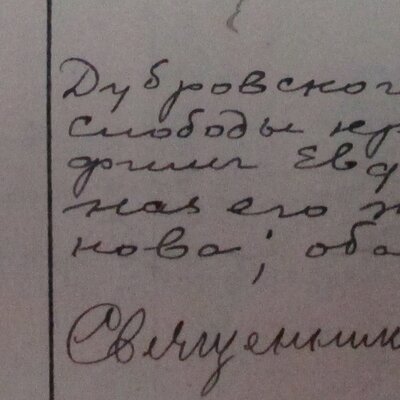 Дубровского
слободы кр
филиг Евф
ная его ж
нова; оба
Священник